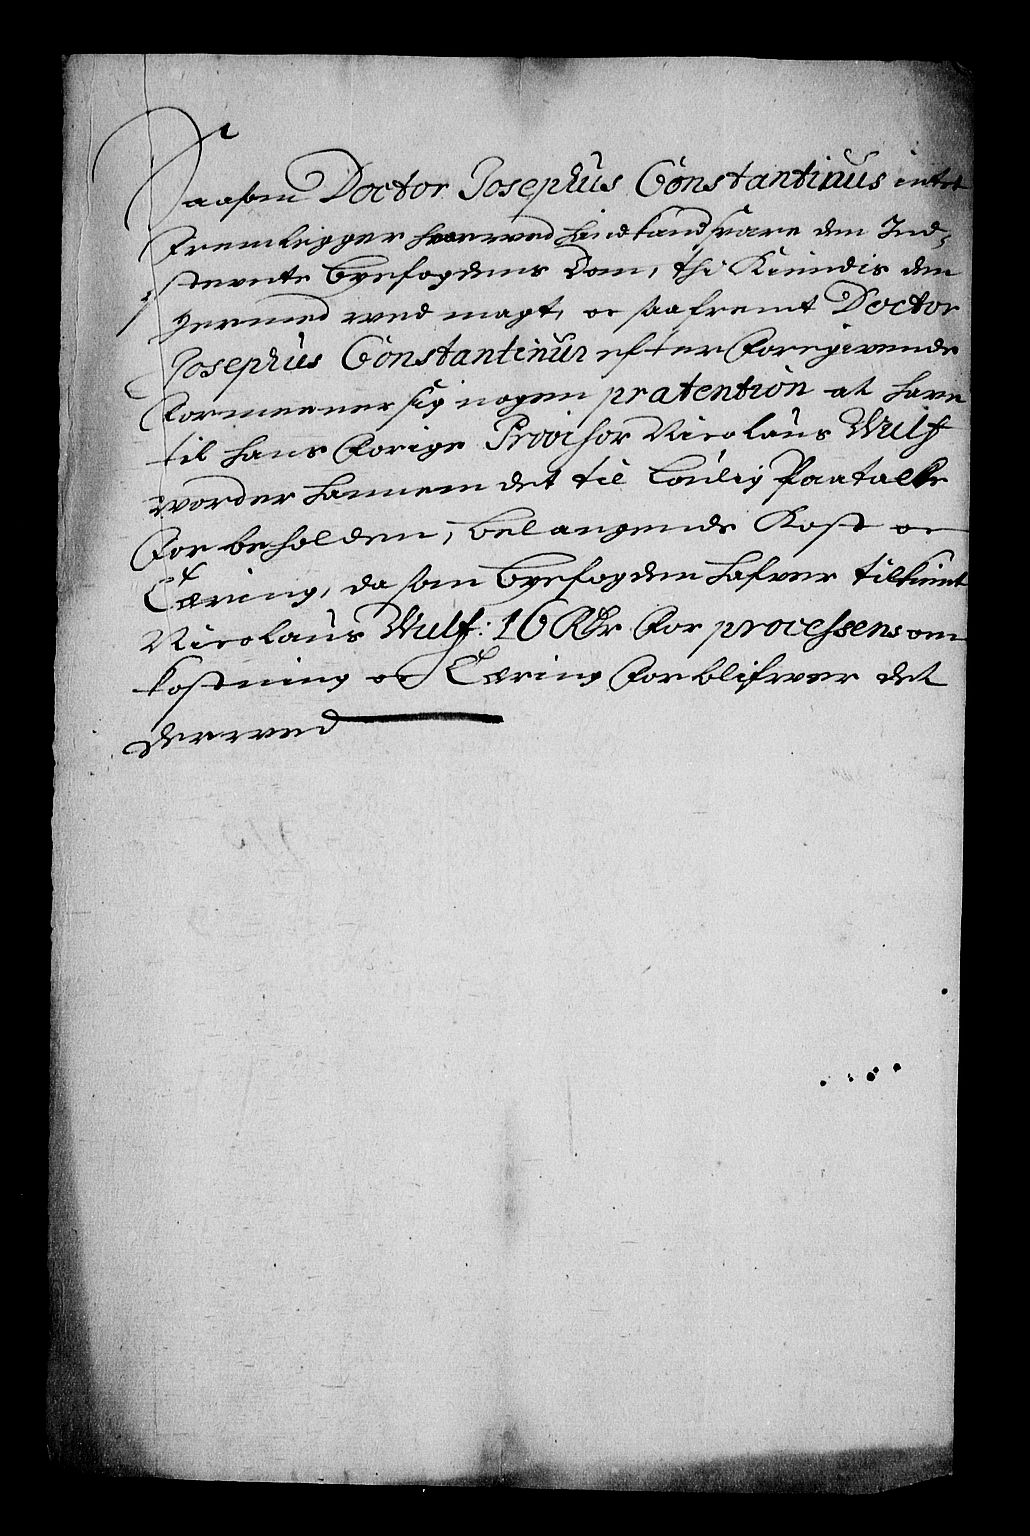 Saasom Doctor Josephus Constantinus intet
fremlegger hvorved hand kand svare den Ind-
stevnte Byefogdens Dom, thi Kiendis den
hermed wed magt, oc saafremt Doctor
Josephus Constantinus efter foregivende
formeener sig nogen prætention at have
til hans forige Provisor Nicolaus Wulf
vorder hannem det til Lovlig Paatalle
forbeholden, belangende Kost oc
Tæring, da som Byefogden hafver tilkient
Nicolaus Wulf: 16 Rdr for processens om
kostning oc Tæring forblifver det
derwed